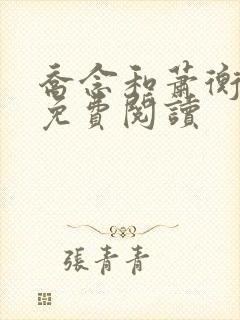 喬念和蕭衡
免費閱讀
張青青